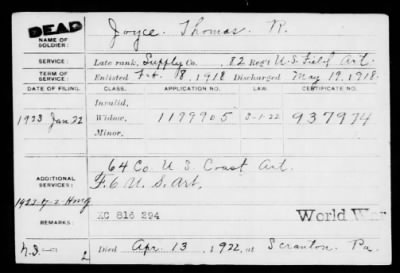 DEAD
NAME OF SOLDIER: Joyce, Thomas R.
SERVICE: Late rank, Supply Co. 82 Reg't U.S. Field Art.
TERM OF SERVICE: Enlisted Feb. 8, 1918 Discharged May 19, 1918
DATE OF FILING. CLASS. APPLICATION NO. LAW. CERTIFICATE NO.
Invalid,
1923 Jan 22 Widow, 1199905 3-1-22 937974
Minor,
64 Co U S Coast Art.
ADDITIONAL SERVICES: F. 6 U. S. Art,
REMARKS: XC 816 294 World War
Died Apr. 13, 1922, at Scranton Pa.